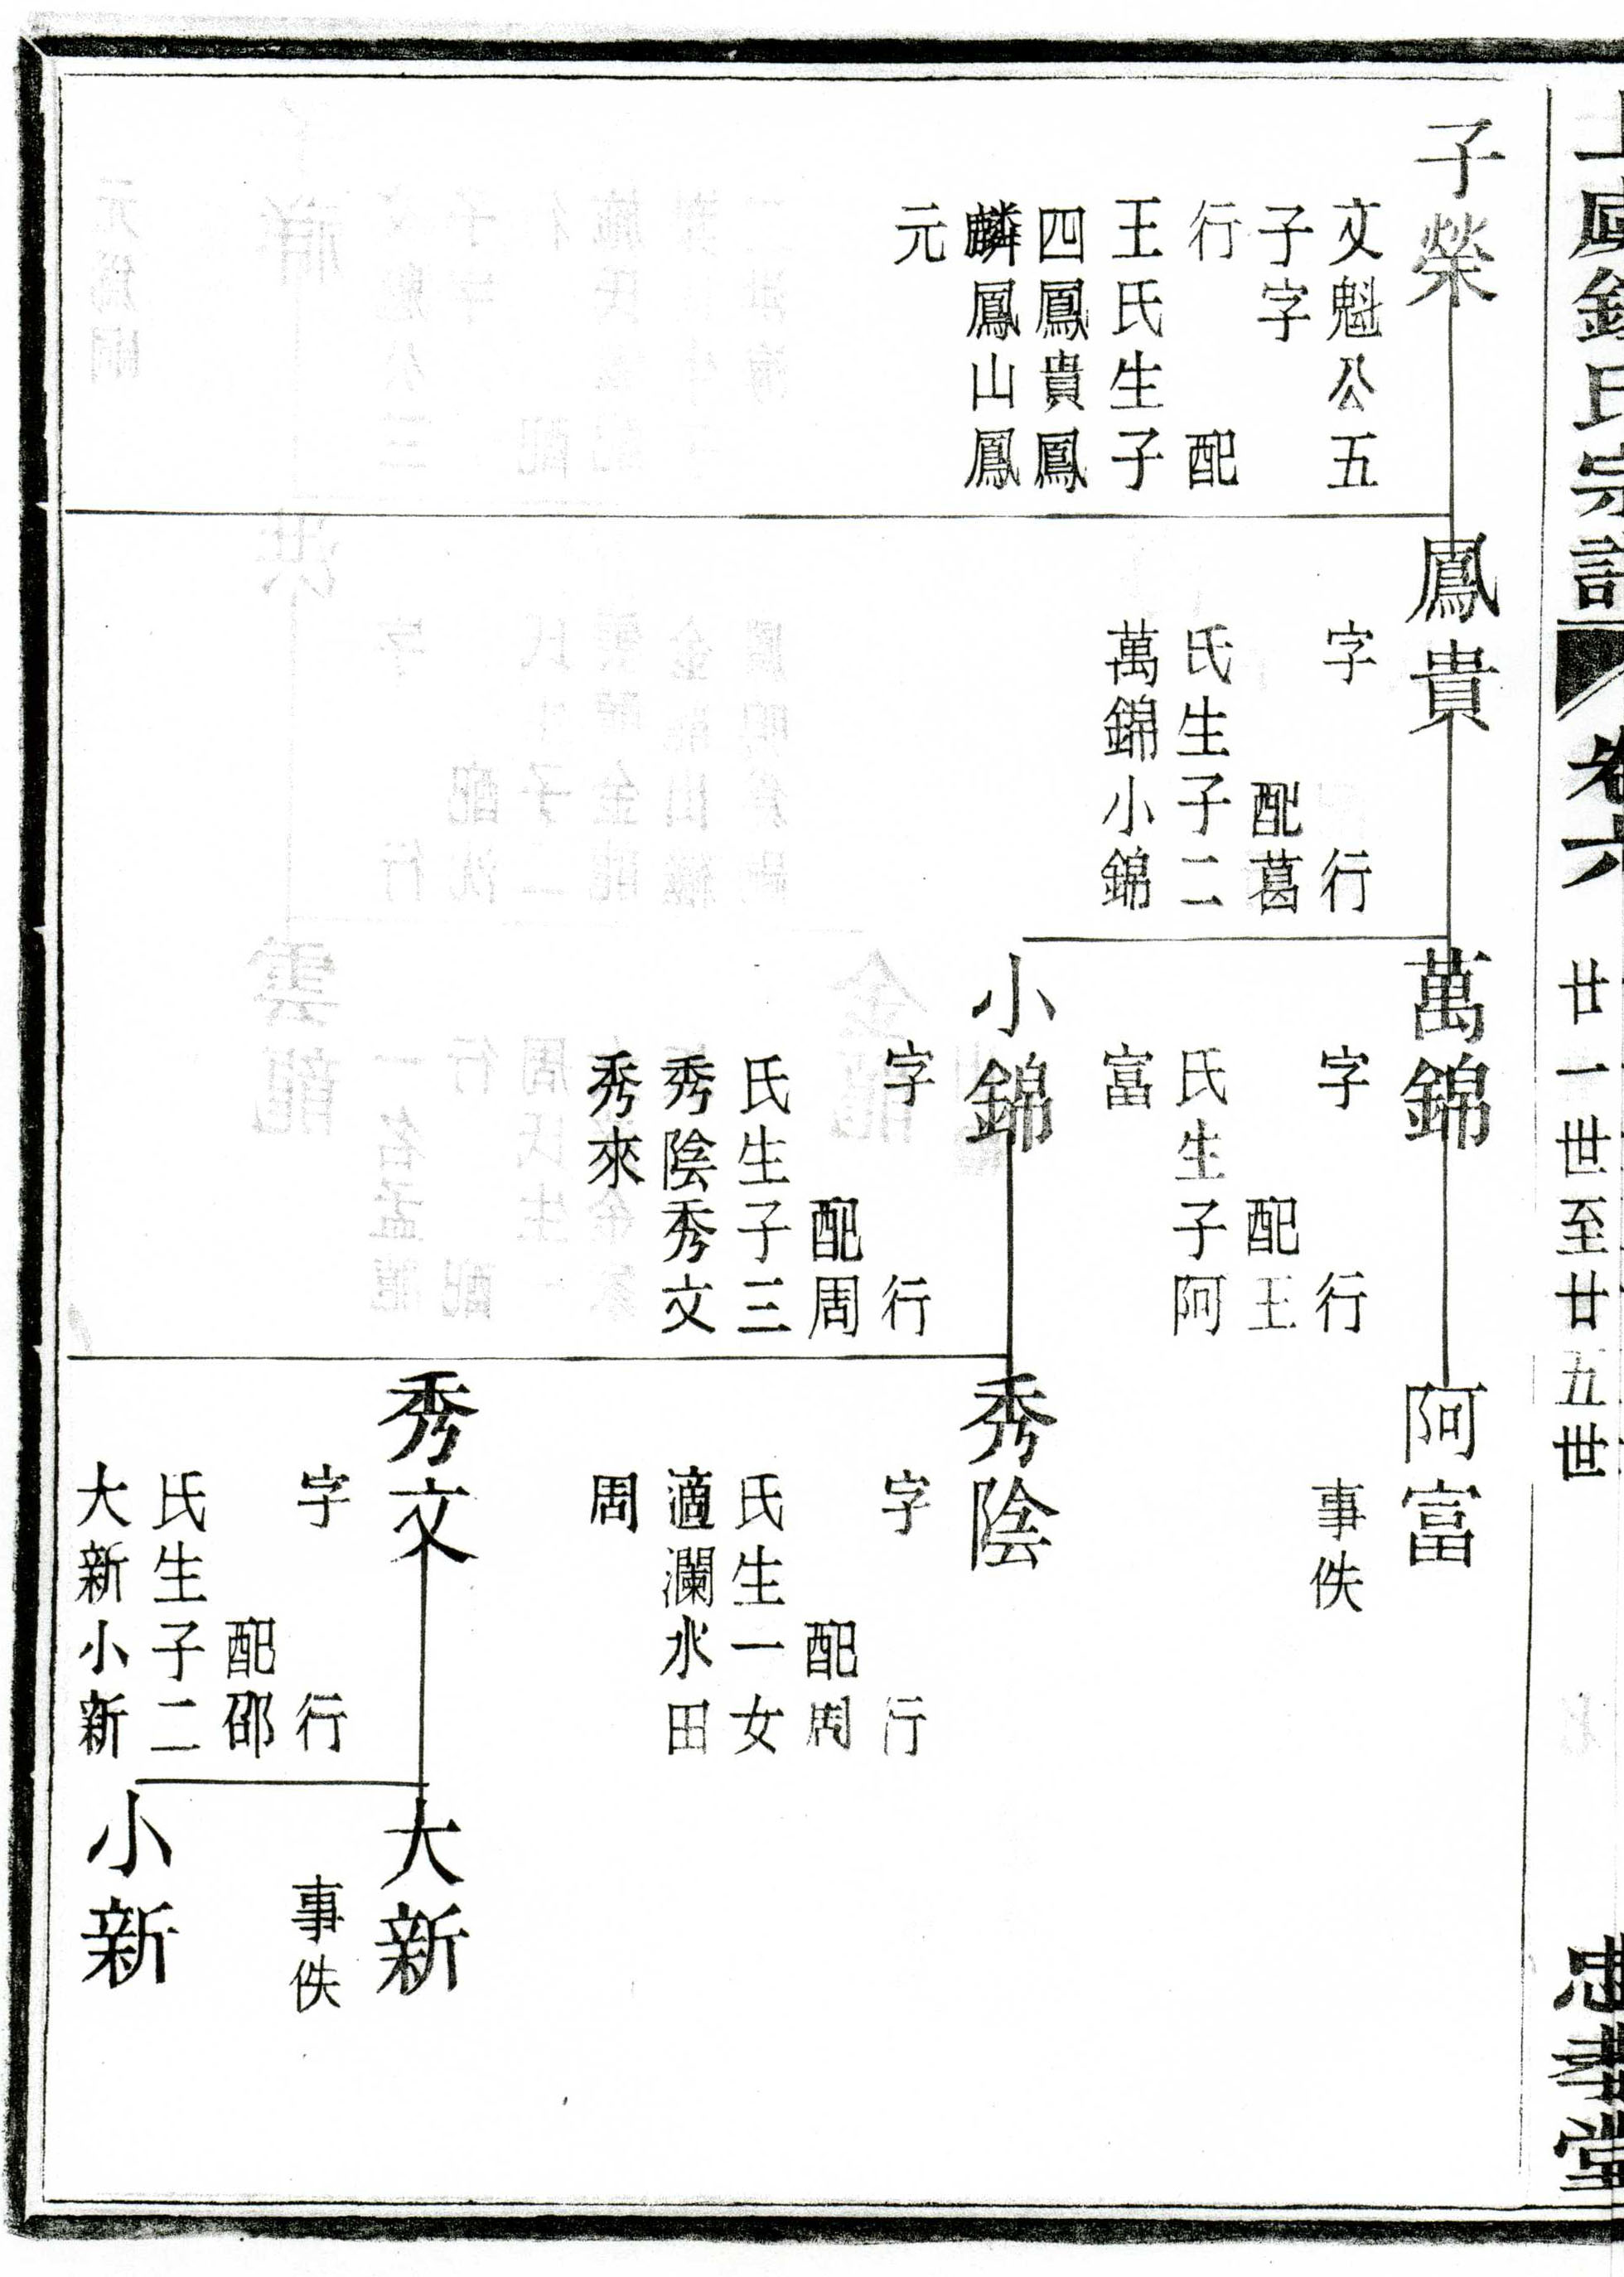 氏宗譜
卷六
廿一世至廿五世
忠孝堂
子榮
文魁公五
子字
行　配
王氏生子
四鳳貴鳳
麟鳳山鳳
元
鳳貴
字　行
配葛
氏生子二
萬錦小錦
萬錦
字　行
配王
氏生子阿
富
小錦
字　行
配周
氏生子三
秀陰秀文
秀來
阿富
事佚
秀陰
字　行
配周
氏生一女
適瀾水田
周
秀文
字　行
配邵
氏生子二
大新小新
大新
事佚
小新